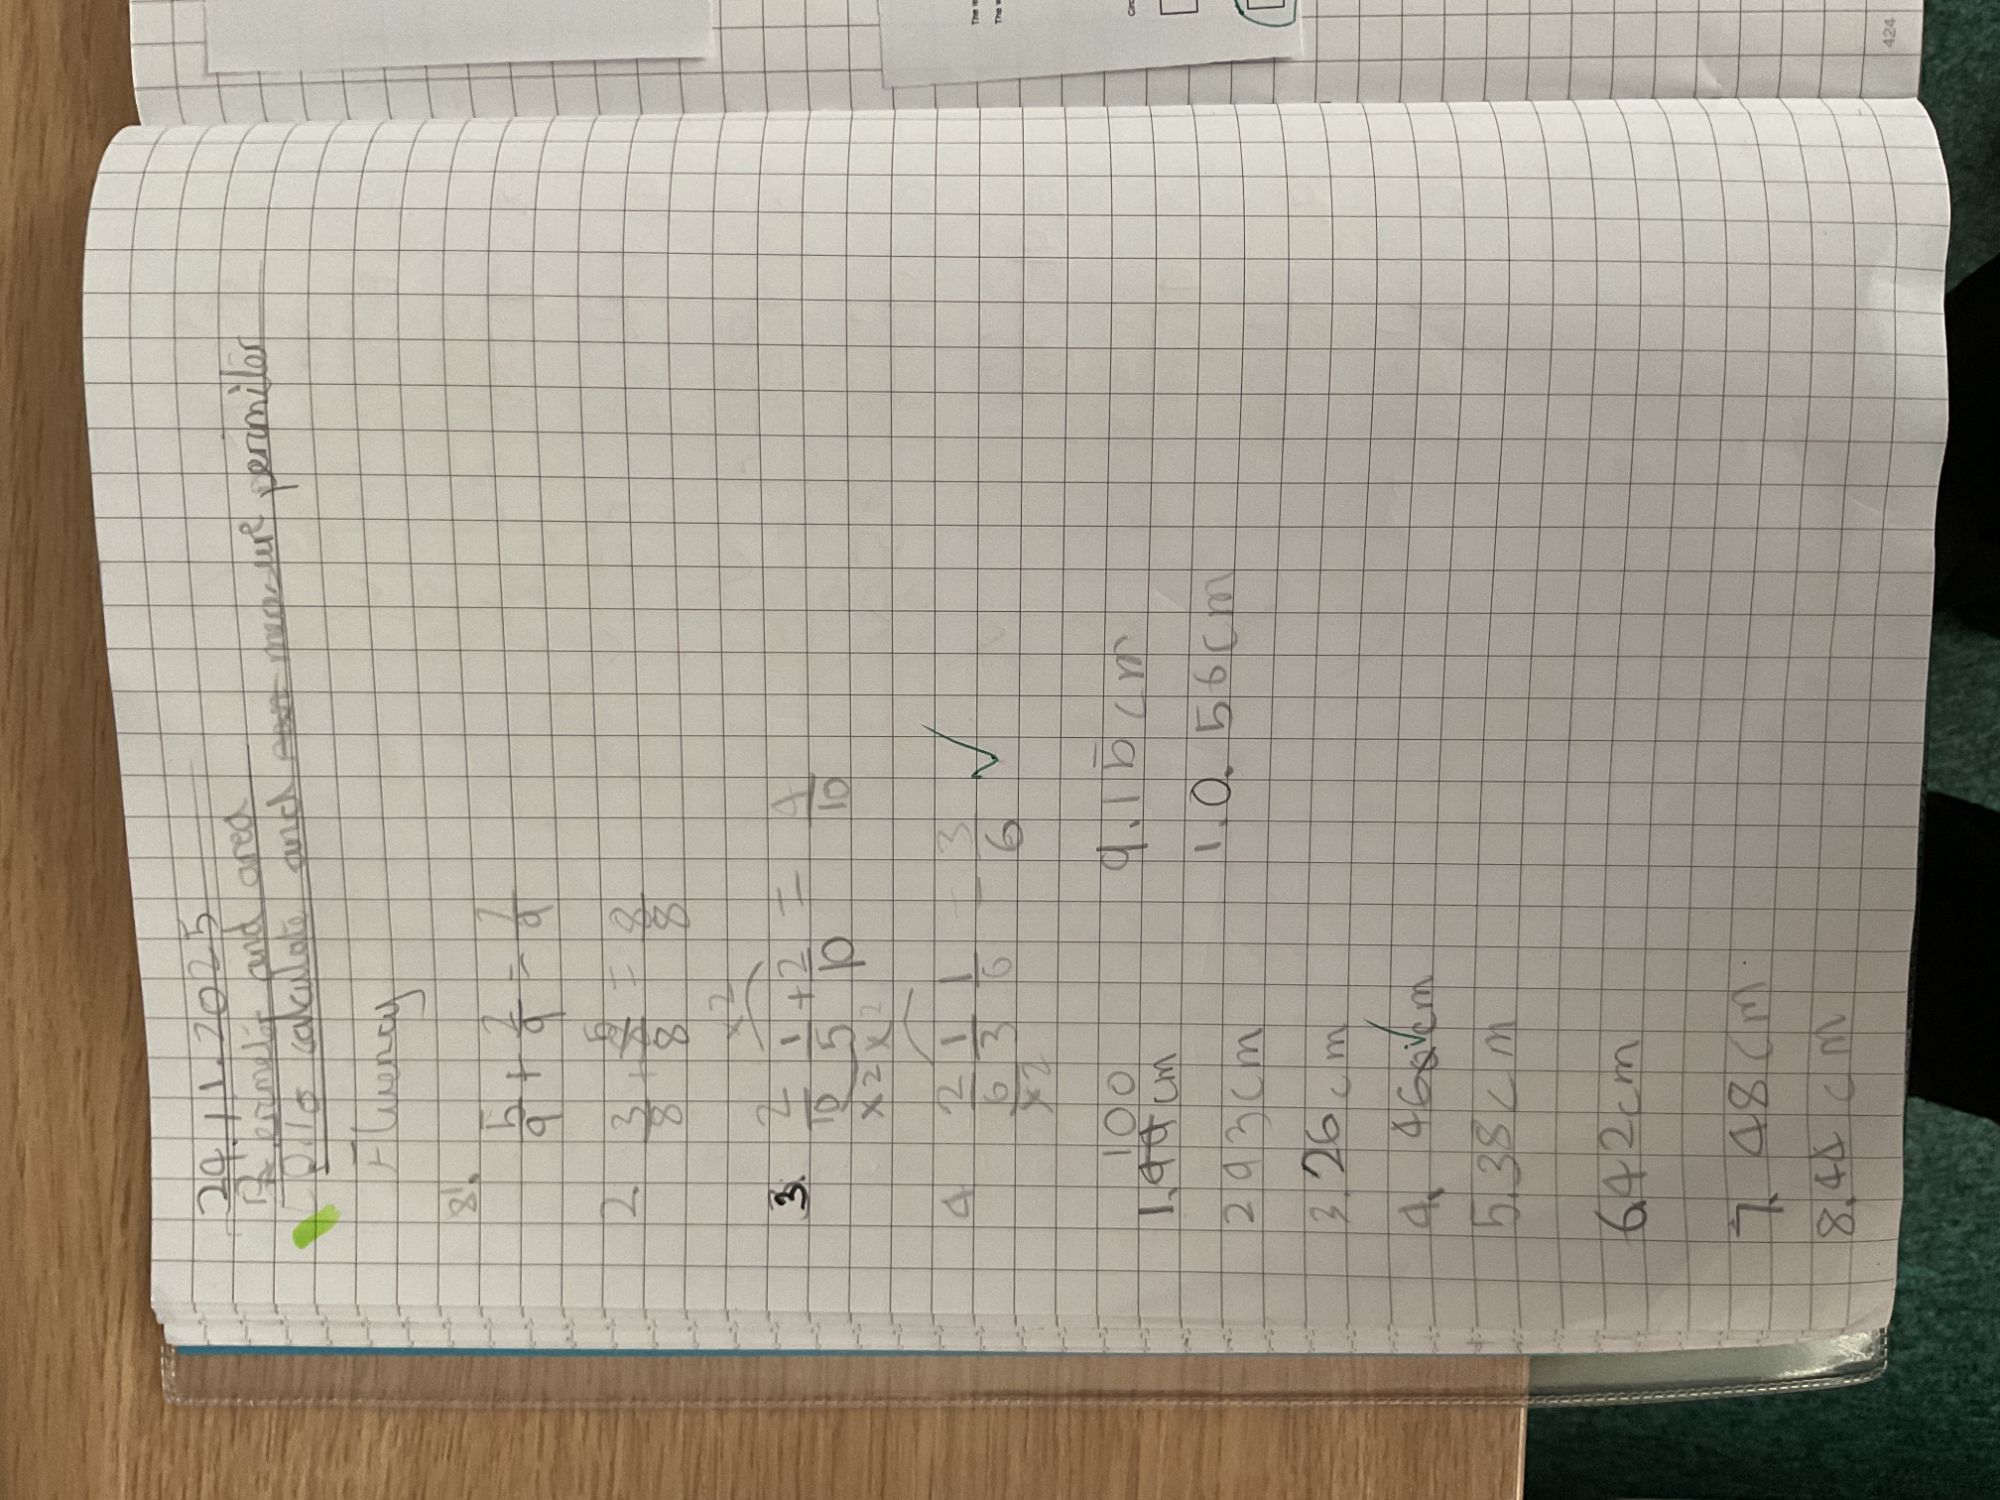 24.11.2025
Perimeter and area
LO: to calculate and measure perimiter
Fluency
8'. 5/9 + 2/9 = 7/9
2. 3/8 + 5/8 = 8/8
×2
3. 2/10 1/5 + 2/10 = 4/10
×2 ×2
4 2/6 1/3 1/6 = 3/6
×2
100
1. cm 9.16cm
2 93cm 1.0. 56cm
3.26cm
4. 46cm
5.38cm
6.42cm
7. 48cm
8.44cm
424